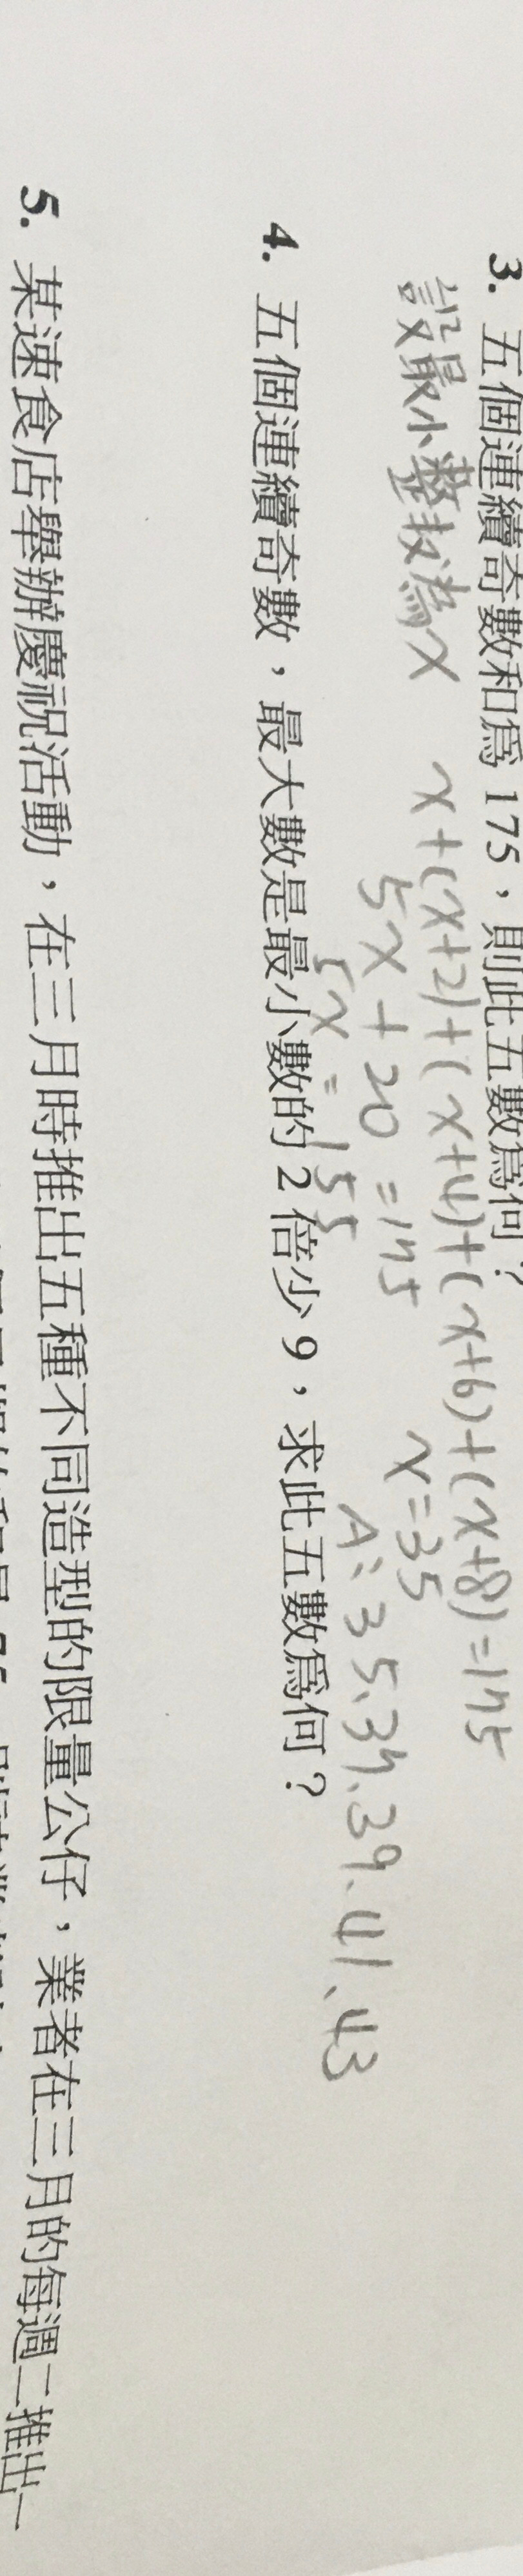 3. 五個連續奇數和為 175，則此五數為何？
設最小整數為x x+(x+2)+(x+4)+(x+6)+(x+8)=175
5x+20=175 x=35
5x=155 A:35、37、39、41、43
4. 五個連續奇數，最大數是最小數的2倍少9，求此五數為何？
5. 某速食店舉辦慶祝活動，在三月時推出五種不同造型的限量公仔，業者在三月的每週二推出一